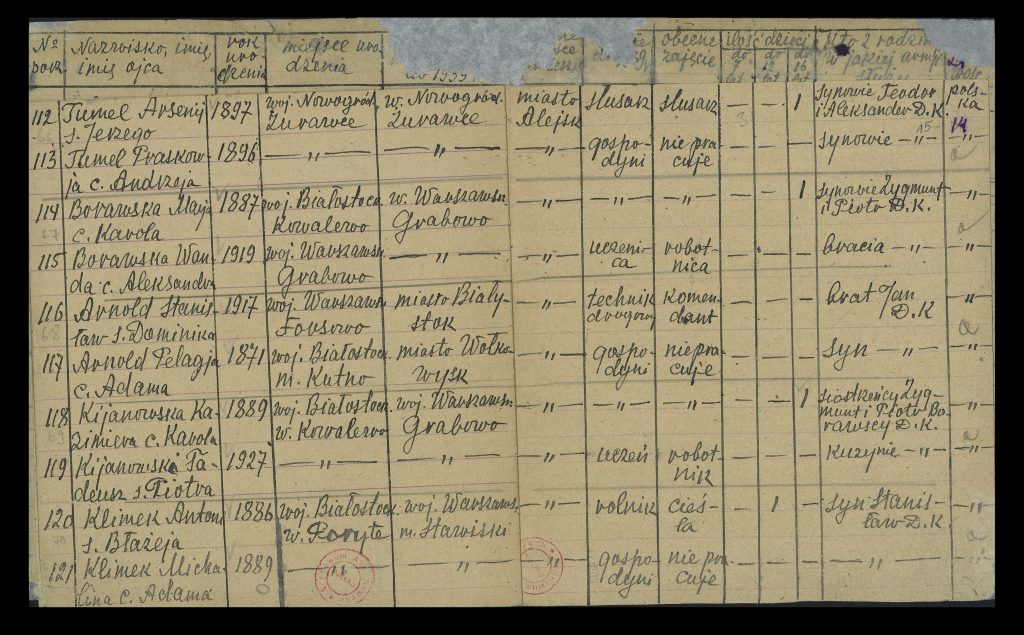 № porz. Nazwisko, imię, imię ojca rok uro dzenia miejsce uro dzenia obecne zajęcie ilość dzieci
112 Tumel Arsenij s. Jerzego 1897 woj. Nowogródz. Żurawce w. Nowogródz. Żurawce miasto Alejsk ślusarz ślusarz — — 1 synowie Teodor i Aleksander D.K. pols- ka
113 Tumel Praskow- ja c. Andrzeja 1896 — „ — — „ — — „ — gospo- dyni nie pra cuje — — synowie — „ — 15 14 „
114 Borawska Marja c. Karola 1887 woj. Białostock. Kowalewo w. Warszawsk. Grabowo — „ — — „ — — „ — — — 1 synowie Zygmunt i Piotr D.K. — „ —
115 Borawska Wan- da c. Aleksandra 1919 woj. Warszawsk. Grabowo — „ — — „ — uczeni- ca robot- nica — — bracia — „ — — „ —
116 Arnold Stanis- ław s. Dominika 1917 woj. Warszawsk. miasto Biały- stok — „ — technik drogowy komen- dant — — — brat Jan D.K — „ —
117 Arnold Pelagja c. Adama 1871 woj. Białostock. m. Kutno miasto Wołko- wysk — „ — gospo- dyni nie pra- cuje — — — syn — „ — — „ —
118 Kijanowska Ka- zimiera c. Karola 1889 woj. Białostock. w. Kowalewo woj. Warszawsk. Grabowo — „ — — „ — — „ — — — 1 siostrzeńcy Zyg- munt i Piotr Bo- rawscy D.K. — „ —
119 Kijanowski Ta- deusz s. Piotra 1927 — „ — — „ — — „ — uczeń robot- nik — — — kuzynie — „ — — „ —
120 Klimek Antoni s. Błażeja 1886 woj. Białostock. w. Poryte woj. Warszaws. m. Stawiski — „ — rolnik cieś- la — 1 — syn Stanis- ław D.K. — „ —
121 Klimek Micha- lina c. Adama 1889 — „ — — „ — — „ — gospo- dyni nie pra cuje — — — — „ — — „ —